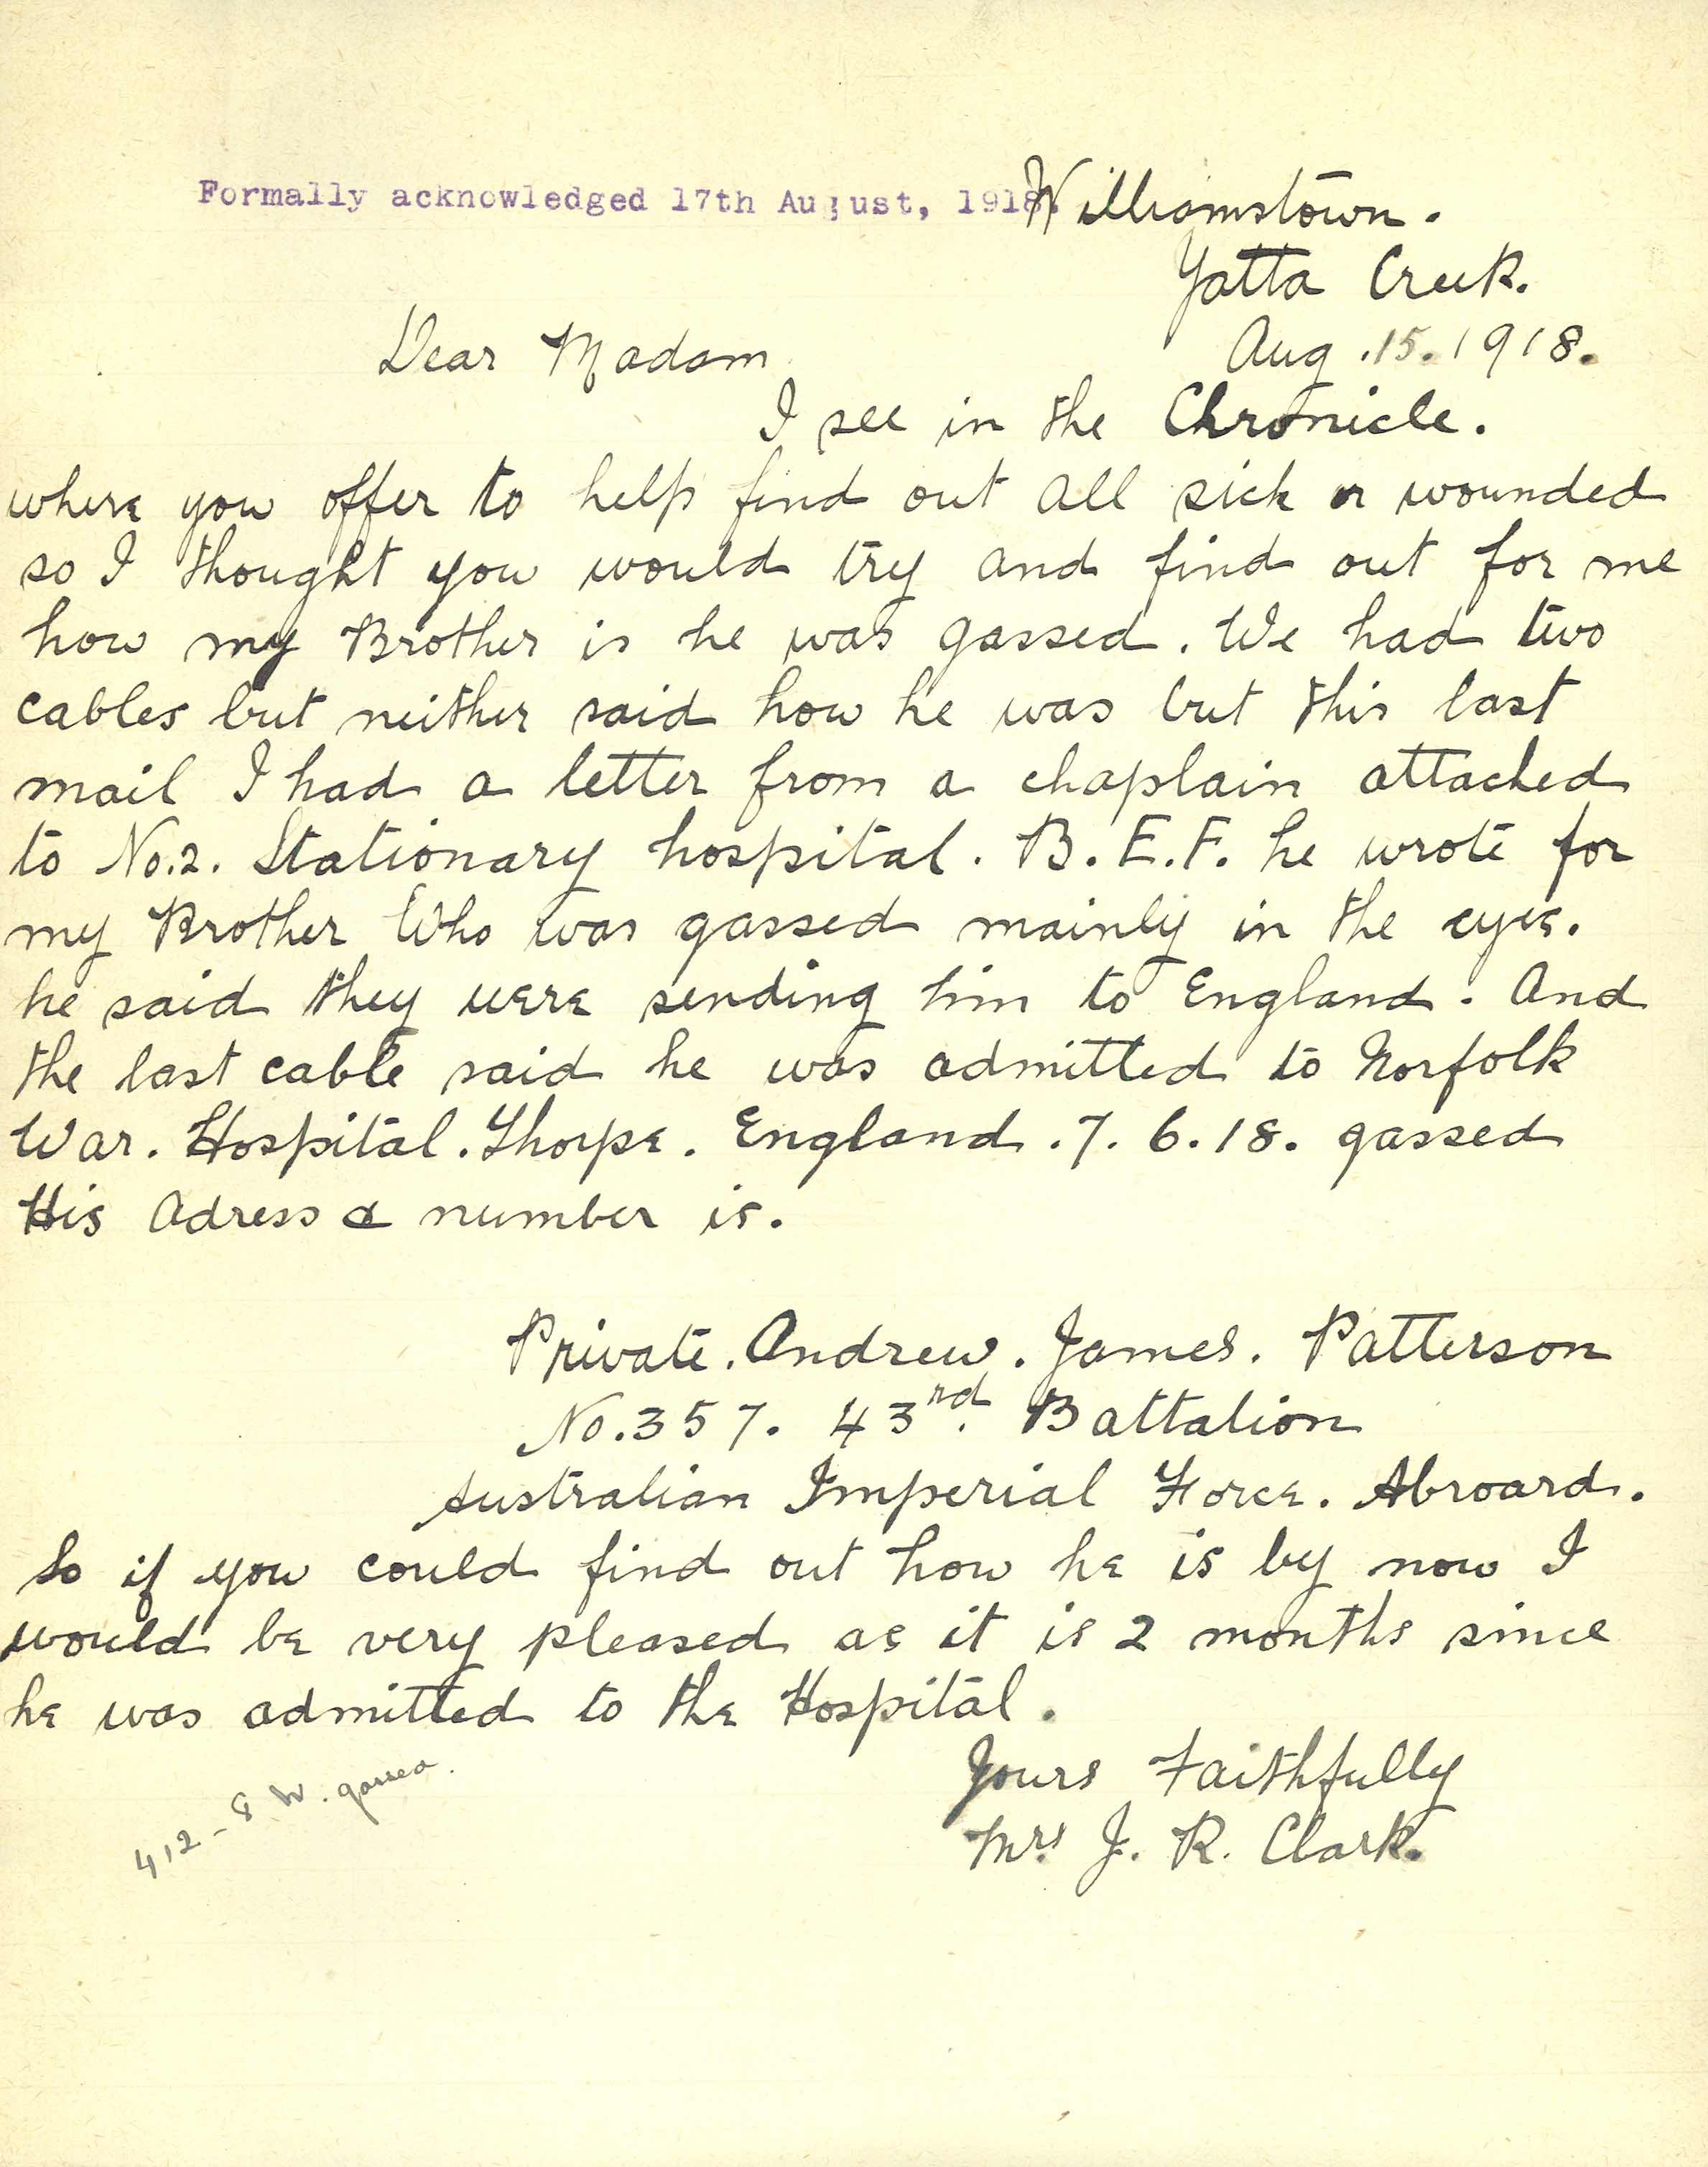 Formally acknowledged 17th August, 1918.
Williamstown.
Yatta Creek.
Aug. 15. 1918.
Dear Madam
I see in the Chronicle.
where you offer to help find out all sick or wounded
so I thought you would try and find out for me
how my Brother is he was gassed. We had two
cables but neither said how he was but this last
mail I had a letter from a chaplain attached
to No.2. Stationary hospital. B.E.F. he wrote for
my Brother Who was gassed mainly in the eyes.
he said they were sending him to England. And
the last cable said he was admitted to Norfolk
War. Hospital. Thorpe. England. 7.6.18. gassed
His Adress & number is.
Private. Andrew. James. Patterson
No.357. 43rd. Battalion
Australian Imperial Force. Abroard.
So if you could find out how he is by now I
would be very pleased as it is 2 months since
he was admitted to the Hospital.
Yours Faithfully
Mrs J. R. Clark.
412 - 8 W. gassed.